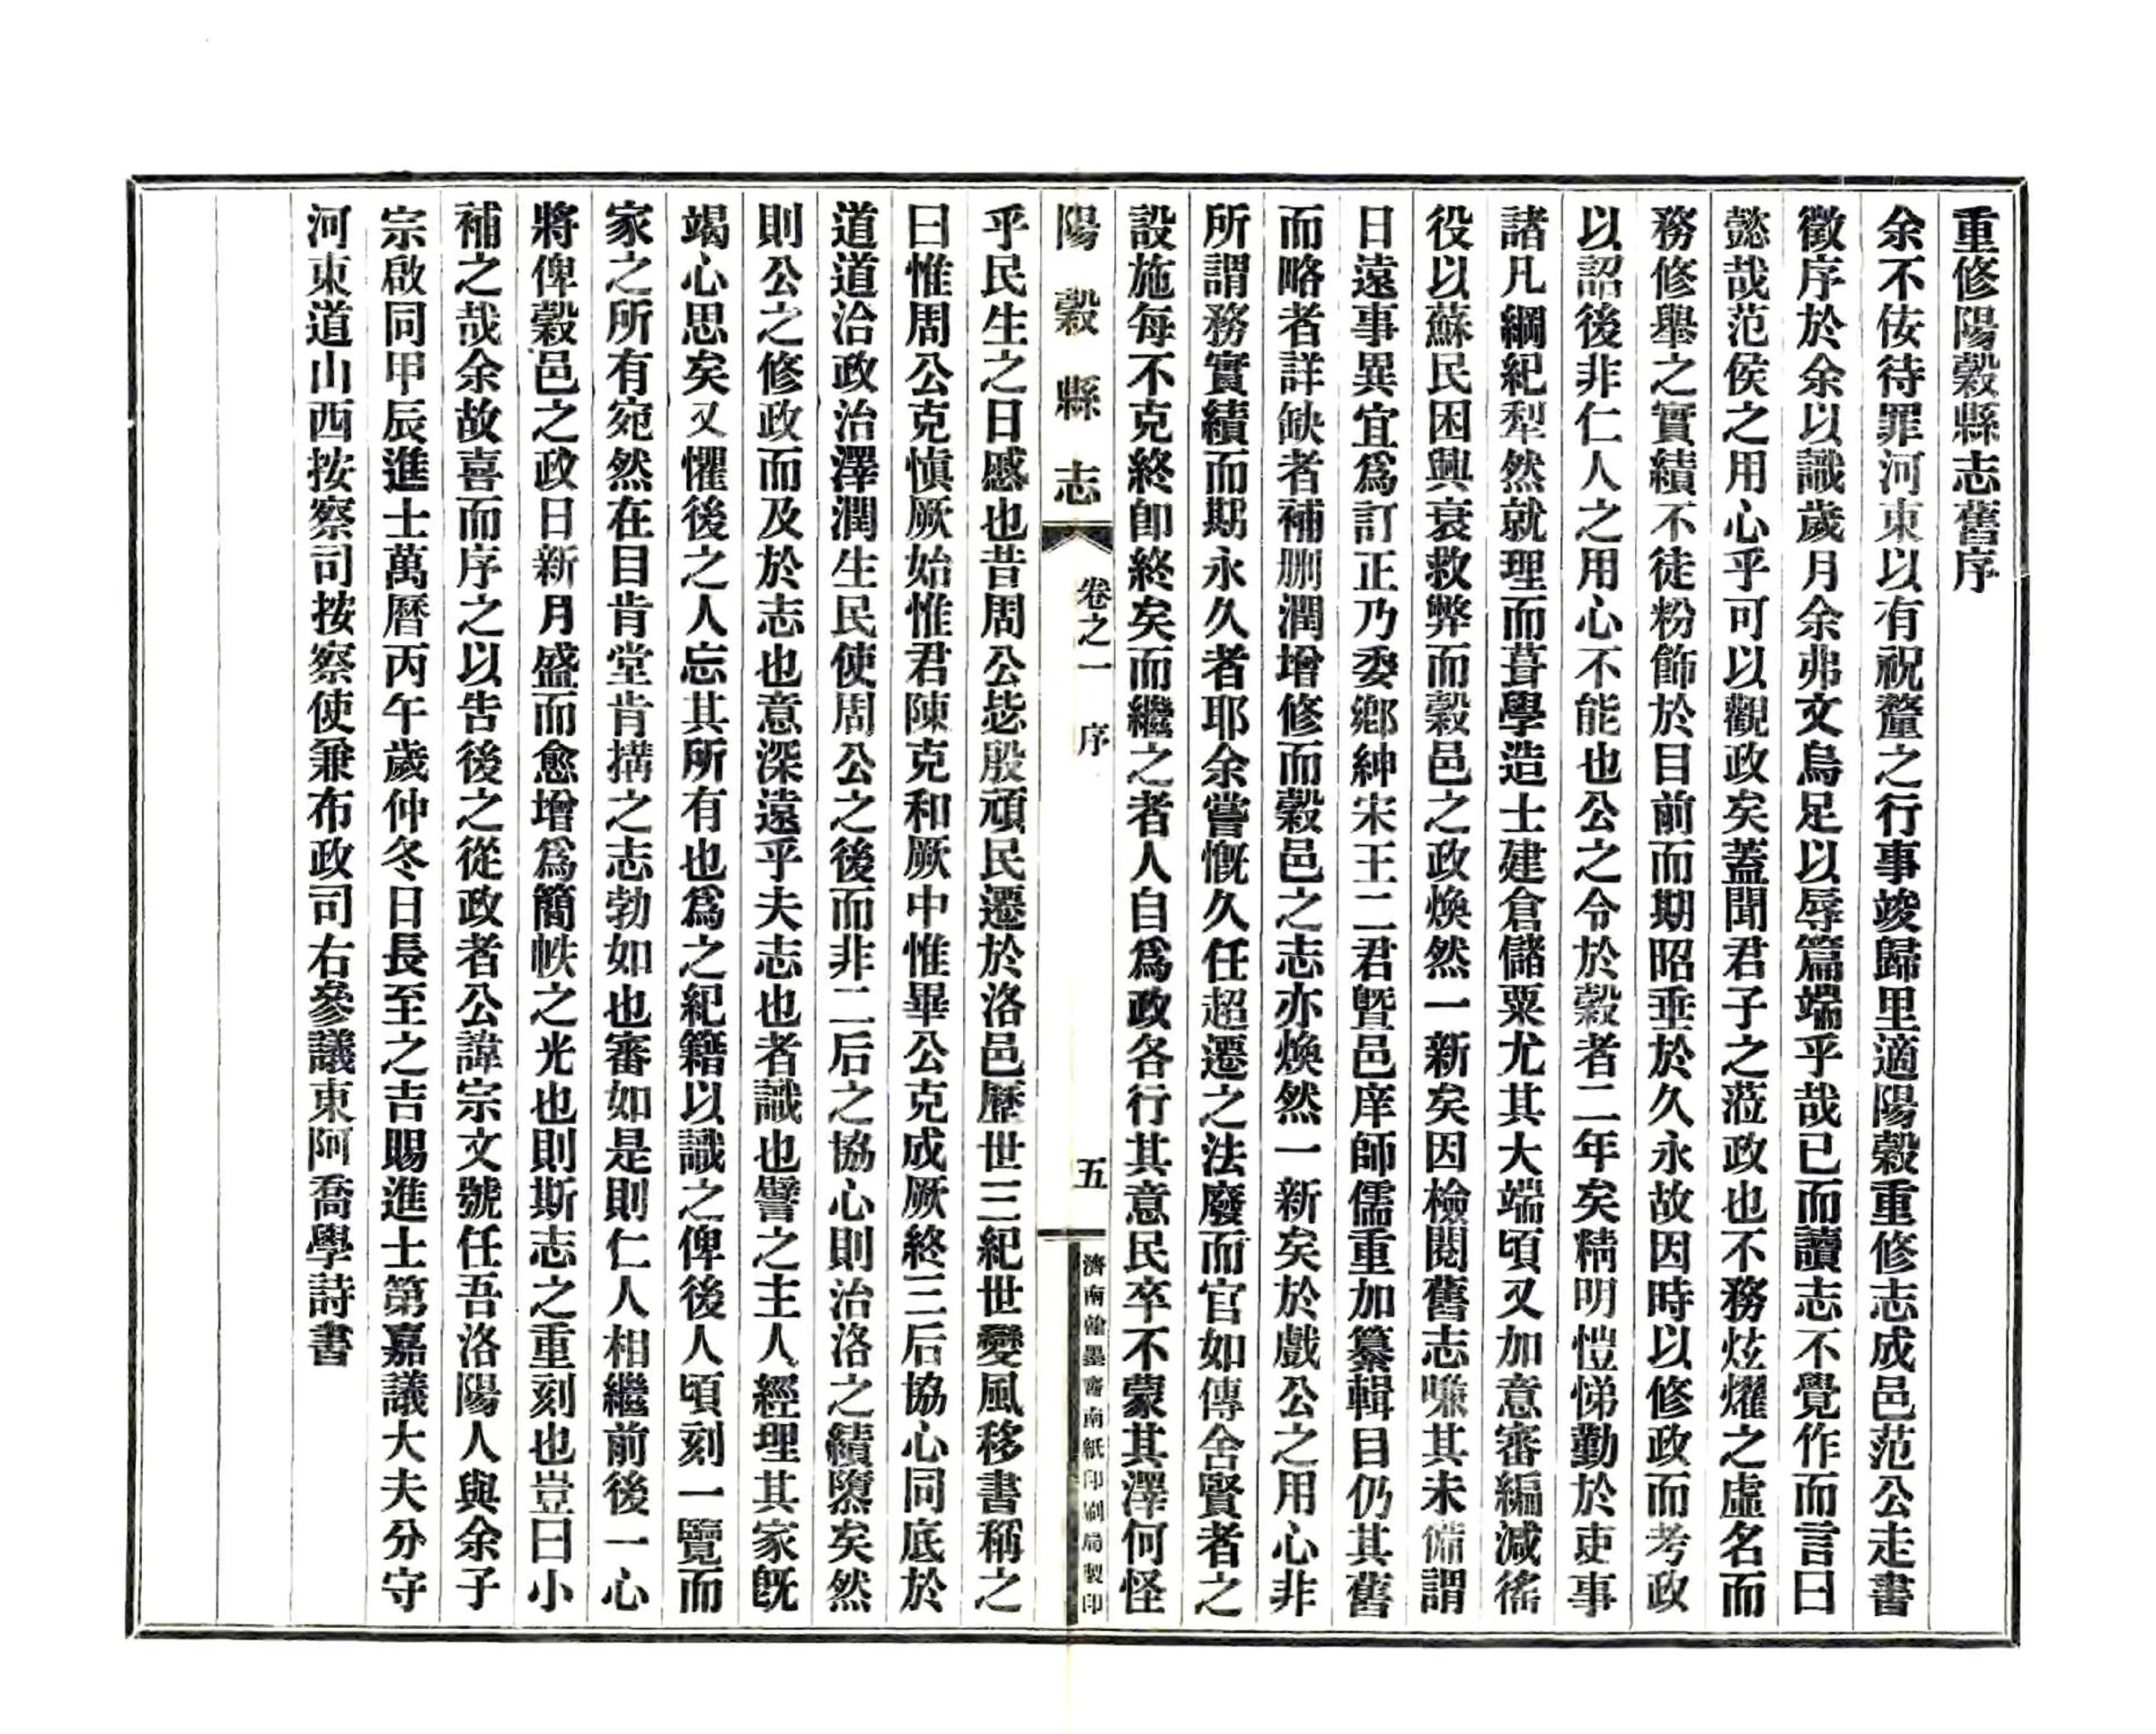 重修陽穀縣志舊序
余不佞待罪河東以有祝釐之行事竣歸里適陽穀重修志成邑范公走書
徵序於余以識歲月余弗文烏足以辱篇端乎哉已而讀志不覺作而言曰
懿哉范侯之用心乎可以觀政矣蓋聞君子之蒞政也不務炫燿之虛名而
務修舉之實績不徒粉飾於目前而期昭垂於久永故因時以修政而考政
以詔後非仁人之用心不能也公之令於穀者二年矣精明愷悌勤於吏事
諸凡綱紀犁然就理而葺學造士建倉儲粟尤其大端頃又加意審編減徭
役以蘇民困興衰救弊而穀邑之政煥然一新矣因檢閱舊志嗛其未備謂
日遠事異宜爲訂正乃委鄉紳宋王二君暨邑庠師儒重加纂輯目仍其舊
而略者詳缺者補刪潤增修而穀邑之志亦煥然一新矣於戲公之用心非
所謂務實績而期永久者耶余嘗慨久任超遷之法廢而官如傳舍賢者之
設施每不克終卽終矣而繼之者人自爲政各行其意民卒不蒙其澤何怪
陽穀縣志
卷之一 序
五
濟南翰墨齋南紙印刷局製印
乎民生之日慼也昔周公毖殷頑民遷於洛邑歷世三紀世變風移書稱之
曰惟周公克愼厥始惟君陳克和厥中惟畢公克成厥終三后協心同底於
道道洽政治澤潤生民使周公之後而非二后之協心則治洛之績隳矣然
則公之修政而及於志也意深遠乎夫志也者識也譬之主人經理其家旣
竭心思矣又懼後之人忘其所有也爲之紀籍以識之俾後人頃刻一覽而
家之所有宛然在目肯堂肯搆之志勃如也審如是則仁人相繼前後一心
將俾穀邑之政日新月盛而愈增爲簡帙之光也則斯志之重刻也豈曰小
補之哉余故喜而序之以告後之從政者公諱宗文號任吾洛陽人與余子
宗啟同甲辰進士萬曆丙午歲仲冬日長至之吉賜進士第嘉議大夫分守
河東道山西按察司按察使兼布政司右參議東阿喬學詩書